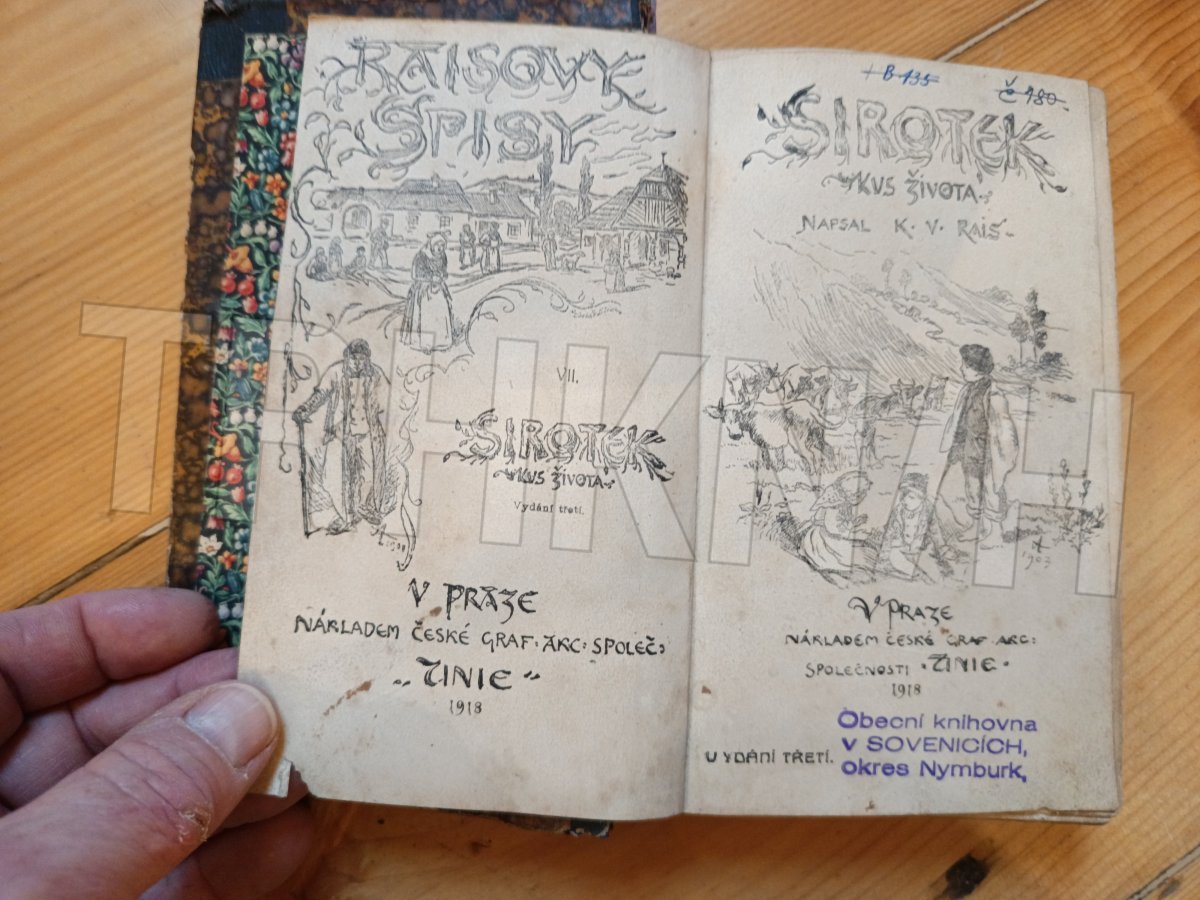 RAISOVY
SPISY
VII.
SIROTEK
KUS ŽIVOTA
Vydání třetí.
V PRAZE
NÁKLADEM ČESKÉ GRAF. AKC: SPOLEČ:
„UNIE“
1918
+ B 135
č 180
SIROTEK
KUS ŽIVOTA
NAPSAL K. V. RAIS
1903
V PRAZE
NÁKLADEM ČESKÉ GRAF. AKC:
SPOLEČNOSTI „UNIE“
1918
VYDÁNÍ TŘETÍ.
Obecní knihovna
v SOVENICÍCH,
okres Nymburk,
TRHKNIH